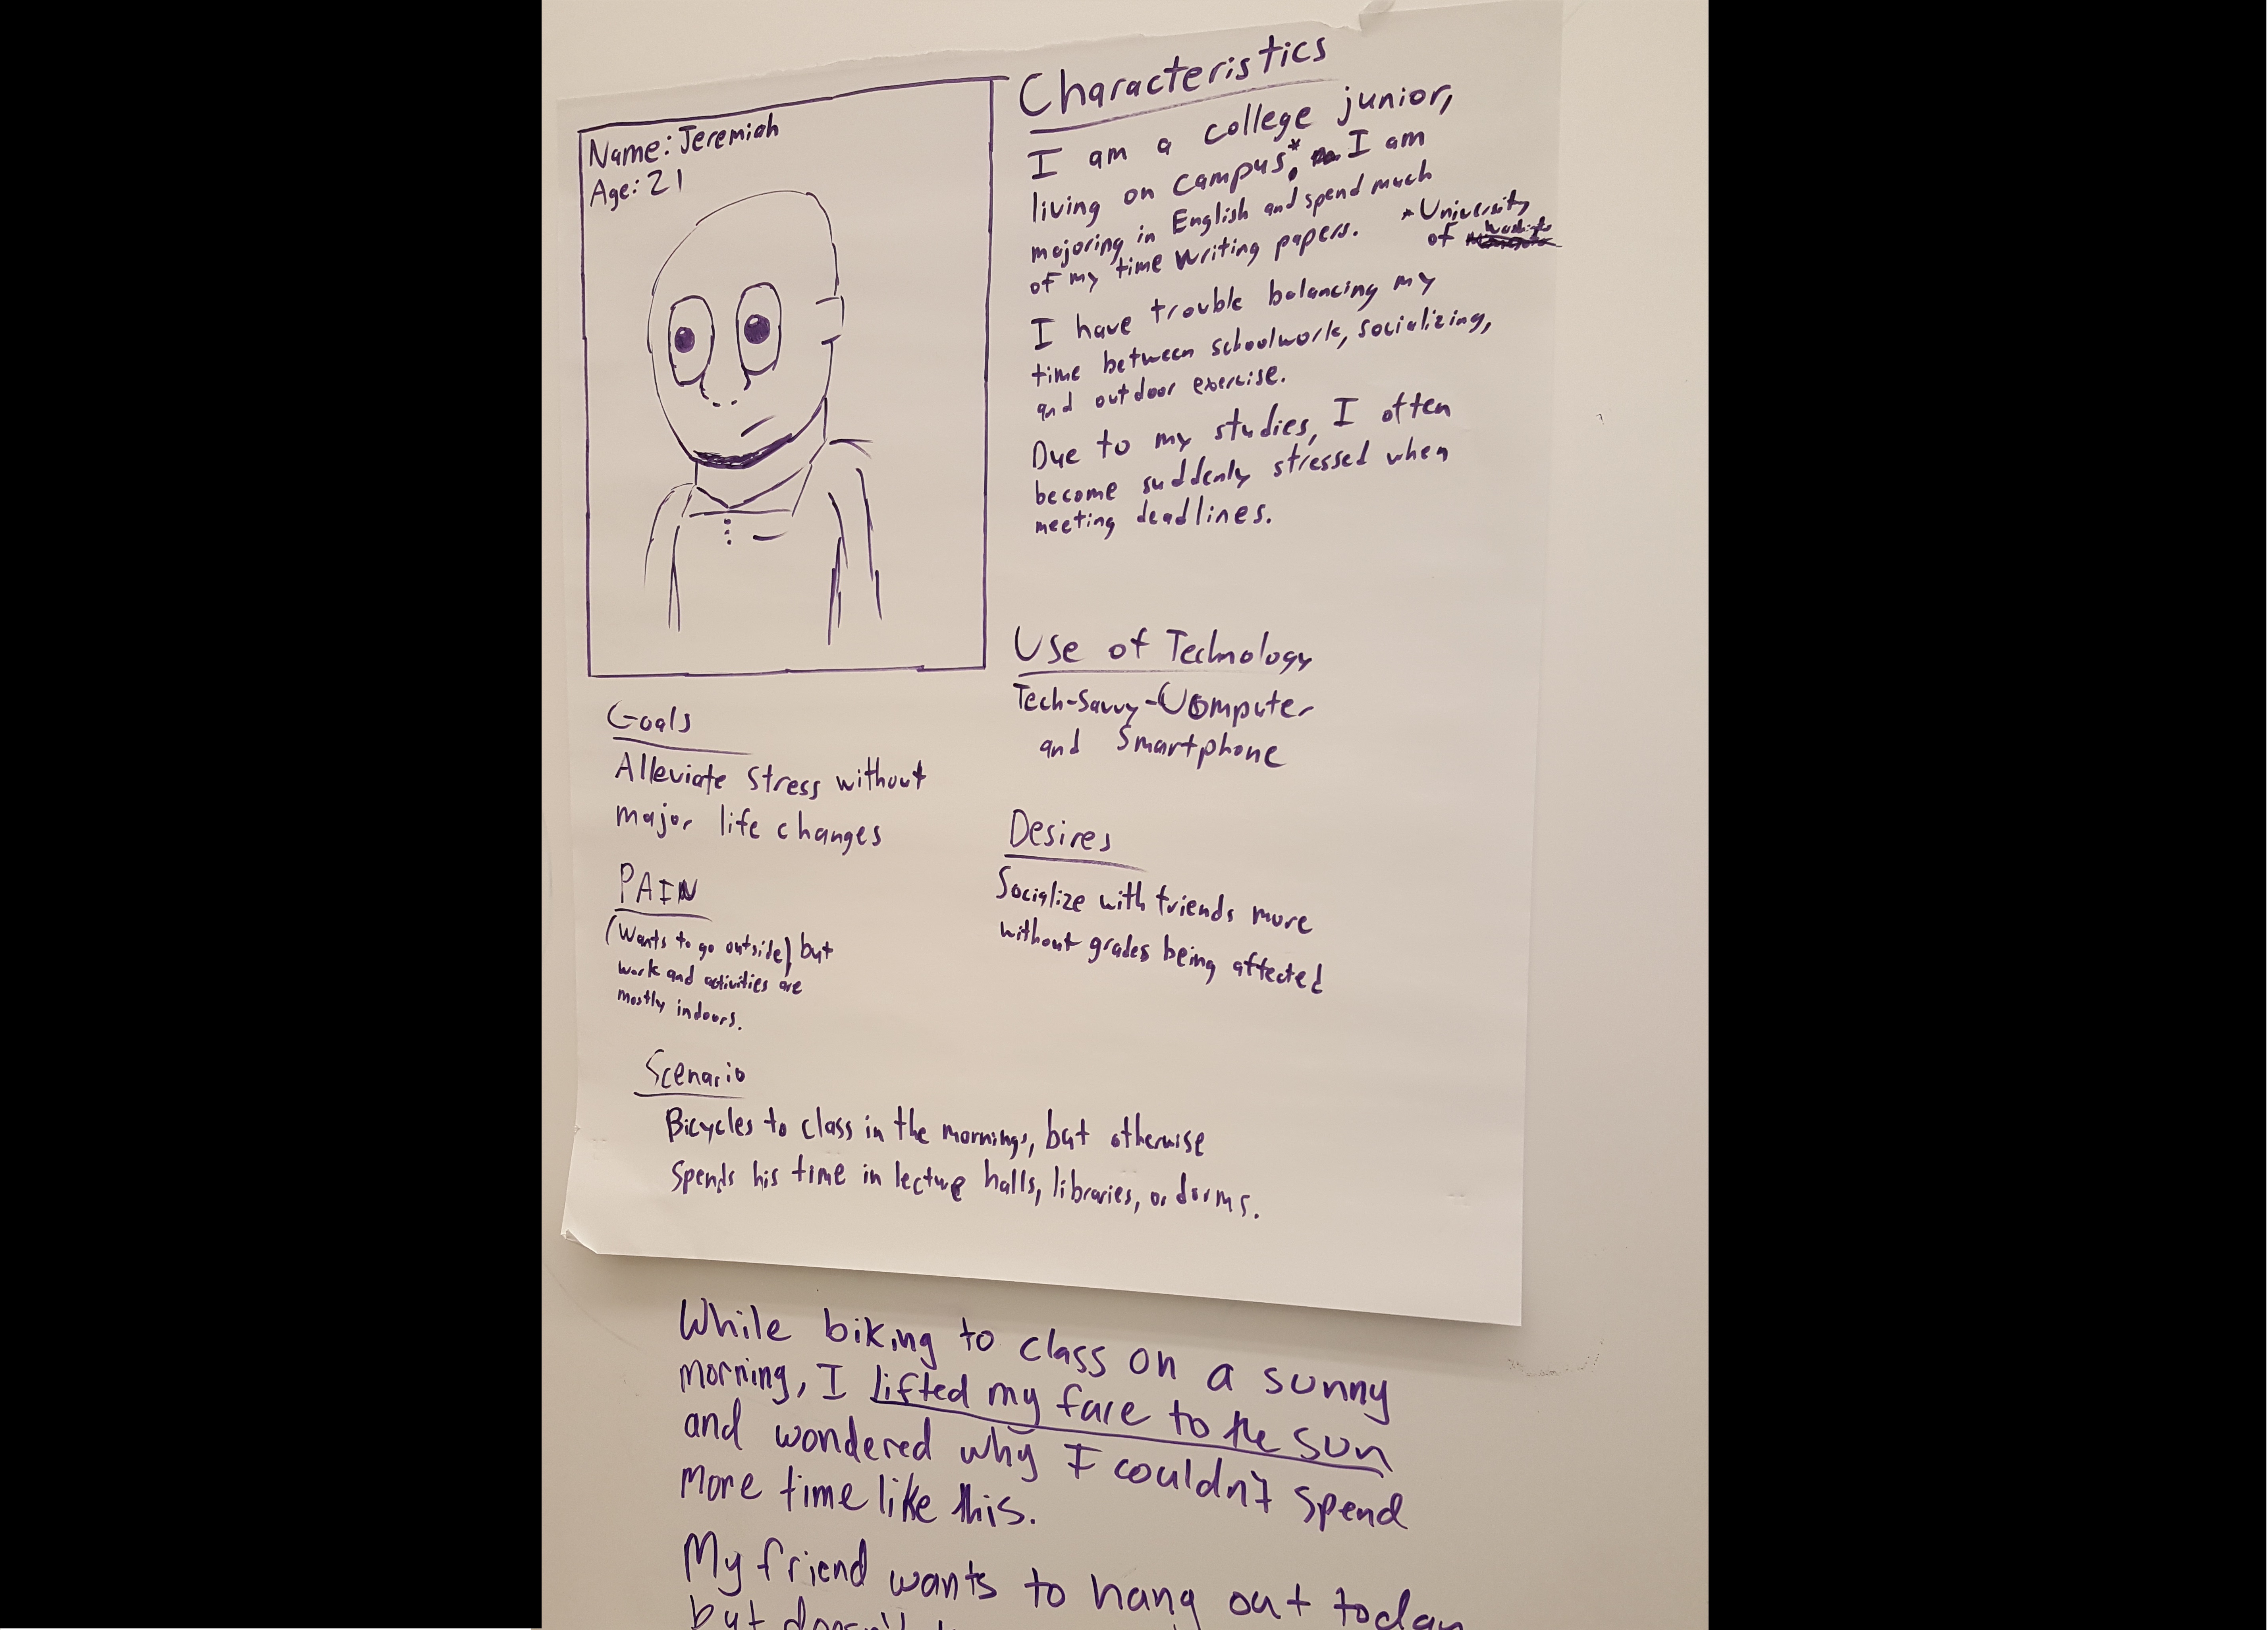 Name: Jeremiah
Age: 21
Characteristics
I am a college junior,
living on campus*. I am
majoring in English and spend much
of my time writing papers.
*University
of Washington
I have trouble balancing my
time between schoolwork, socializing,
and outdoor exercise.
Due to my studies, I often
become suddenly stressed when
meeting deadlines.
Use of Technology
Tech-Savvy-Computer
and Smartphone
Goals
Alleviate stress without
major life changes
Desires
Socialize with friends more
without grades being affected
PAIN
(Wants to go outside) but
work and activities are
mostly indoors.
Scenario
Bicycles to class in the mornings, but otherwise
Spends his time in lecture halls, libraries, or dorms.
While biking to class on a sunny
morning, I lifted my face to the sun
and wondered why I couldn't spend
more time like this.
My friend wants to hang out today
but doesn't